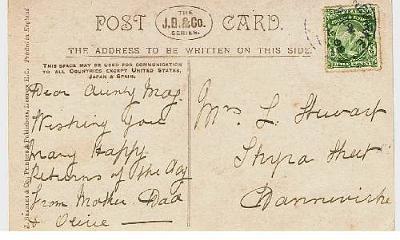 POST CARD.
THE
J.B.&Co.
SERIES.
THE ADDRESS TO BE WRITTEN ON THIS SIDE
THIS SPACE MAY BE USED FOR COMMUNICATION
TO ALL COUNTRIES EXCEPT UNITED STATES,
JAPAN & SPAIN.
Printed in England
Dear Aunty Mag.
Wishing you
Many Happy
Returns of the Day
from Mother Dad
&
Mrs L Stewart
Street
Dannevirke